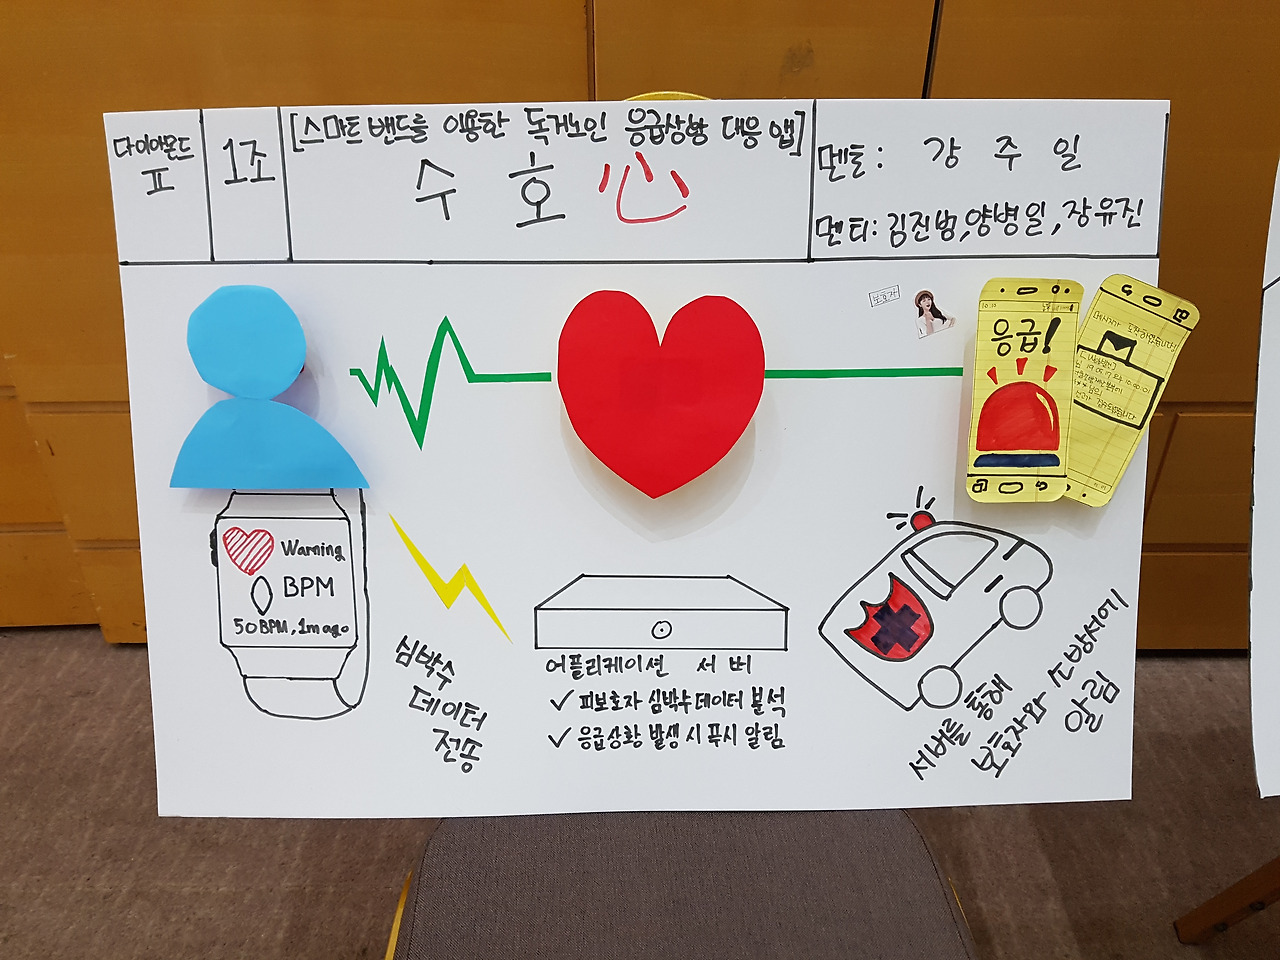 다이아몬드
II
1조
[스마트 밴드를 이용한 독거노인 응급상황 대응 앱]
수 호 心
멘토: 강 주 일
멘티: 김진범, 양병일, 장유진
보호자
10:10
응급!
메시지가 도착하였습니다!
Warning
BPM
50 BPM, 1m ago
심박수
데이터
전송
어플리케이션 서버
✓ 피보호자 심박수 데이터 분석
✓ 응급상황 발생 시 푹시 알림
서버를 통해
보호자와 소방서에
알림